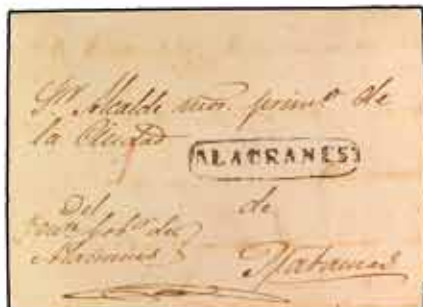 Sr. Alcalde mor. primo. de
la Ciudad
ALACRANES
Del de
Tente. Gobor. de
Alacranes Matanzas